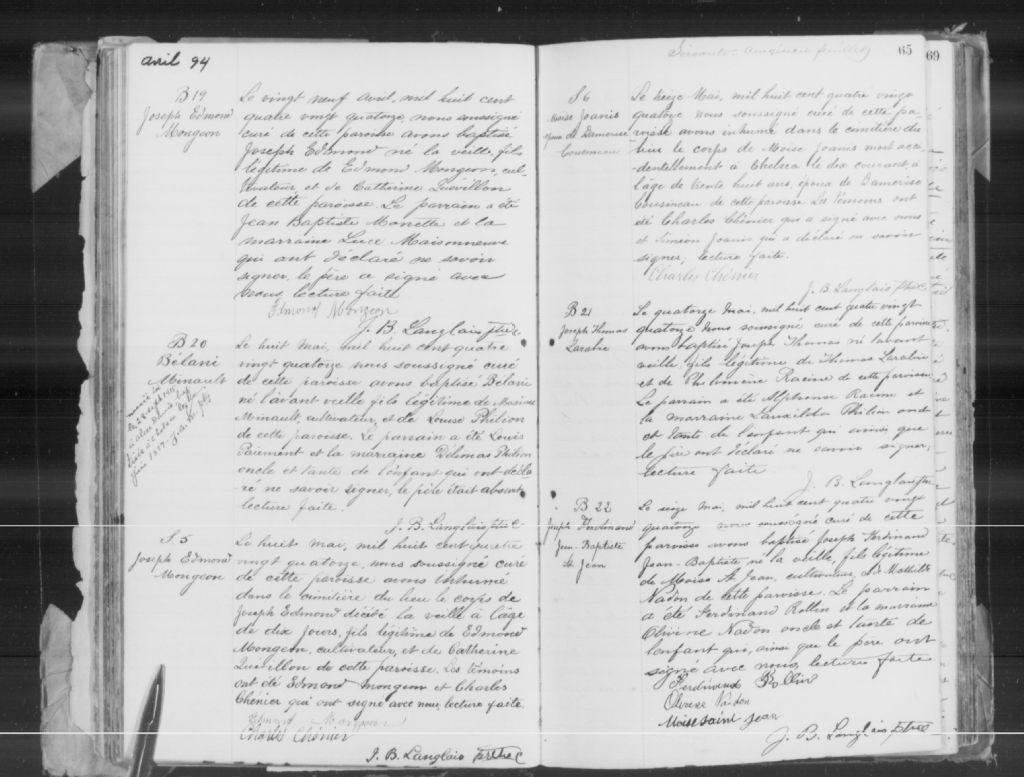 avril 94
B 19
Joseph Edmond
Mongeon
Le vingt neuf avril, mil huit cent
quatre vingt quatorze, nous soussigné
curé de cette paroisse avons baptisé
Joseph Edmond né la veille, fils
légitime de Edmond Mongeon, cul-
tivateur, et de Catherine Quévillon
de cette paroisse. Le parrain a été
Jean Baptiste Monette et la
marraine Luce Maisonneuve
qui ont déclaré ne savoir
signer, le père a signé avec
nous, lecture faite
Edmond Mongeon
J. B. Langlais ptre c
B 20
Bélani
Minault
Le huit Mai, mil huit cent quatre
vingt quatorze nous soussigné curé
de cette paroisse avons baptisé Bélani
né l'avant veille fils légitime de Maxime
Minault, cultivateur, et de Louise Philion
de cette paroisse. Le parrain a été Louis
Paiement et la marraine Délimas Philion
oncle et tante de l'enfant qui ont décla-
ré ne savoir signer, le père était absent,
lecture faite.
J. B. Langlais ptre c
S 5
Joseph Edmond
Mongeon
Le huit mai, mil huit cent quatre
vingt quatorze, nous soussigné curé
de cette paroisse avons inhumé
dans le cimitière du lieu le corps de
Joseph Edmond décédé la veille à l'âge
de dix jours, fils légitime de Edmond
Mongeon, cultivateur, et de Catherine
Quévillon de cette paroisse. Les témoins
ont été Edmond Mongeon et Charles
Chénier qui ont signé avec nous, lecture faite.
Edmond Mongeon
Charles Chénier
J. B. Langlais ptre c
65
69
S 6
Moise Joanis
époux de Damerise
Cousineau
Le treize Mai, mil huit cent quatre vingt
quatorze nous soussigné curé de cette pa-
roisse avons inhumé dans le cimitière du
lieu le corps de Moise Joanis mort acci-
dentellement à Chelsea le dix courant, à
l'âge de trente huit ans, époux de Damerise
Cousineau de cette paroisse. Les témoins ont
été Charles Chénier qui a signé avec nous
et Siméon Joanis qui a déclaré ne savoir
signer, lecture faite.
Charles Chénier
J. B. Langlais ptre c
B 21
Joseph Thomas
Laralie
Le quatorze Mai, mil huit cent quatre vingt
quatorze nous soussigné curé de cette paroisse
avons baptisé Joseph Thomas né l'avant
veille, fils légitime de Thomas Laralie
et de Philomène Racine de cette paroisse
Le parrain a été Alphonse Racine et
la marraine Philion oncle
et tante de l'enfant qui ainsi que
le père ont déclaré ne savoir signer,
lecture faite
J. B. Langlais ptre
B 22
Joseph Ferdinand
Jean-Baptiste
St. Jean
Le seize Mai, mil huit cent quatre vingt
quatorze nous soussigné curé de cette
paroisse avons baptisé Joseph Ferdinand
Jean-Baptiste né la veille, fils légitime
de Moise St Jean, cultivateur, et de Mathilde
Nadon de cette paroisse. Le parrain
a été Ferdinand Rollin et la marraine
Olivine Nadon oncle et tante de
l'enfant qui, ainsi que le père ont
signé avec nous, lecture faite
Ferdinand Rollin
Olivine Nadon
Moise Saint Jean
J. B. Langlais ptre c